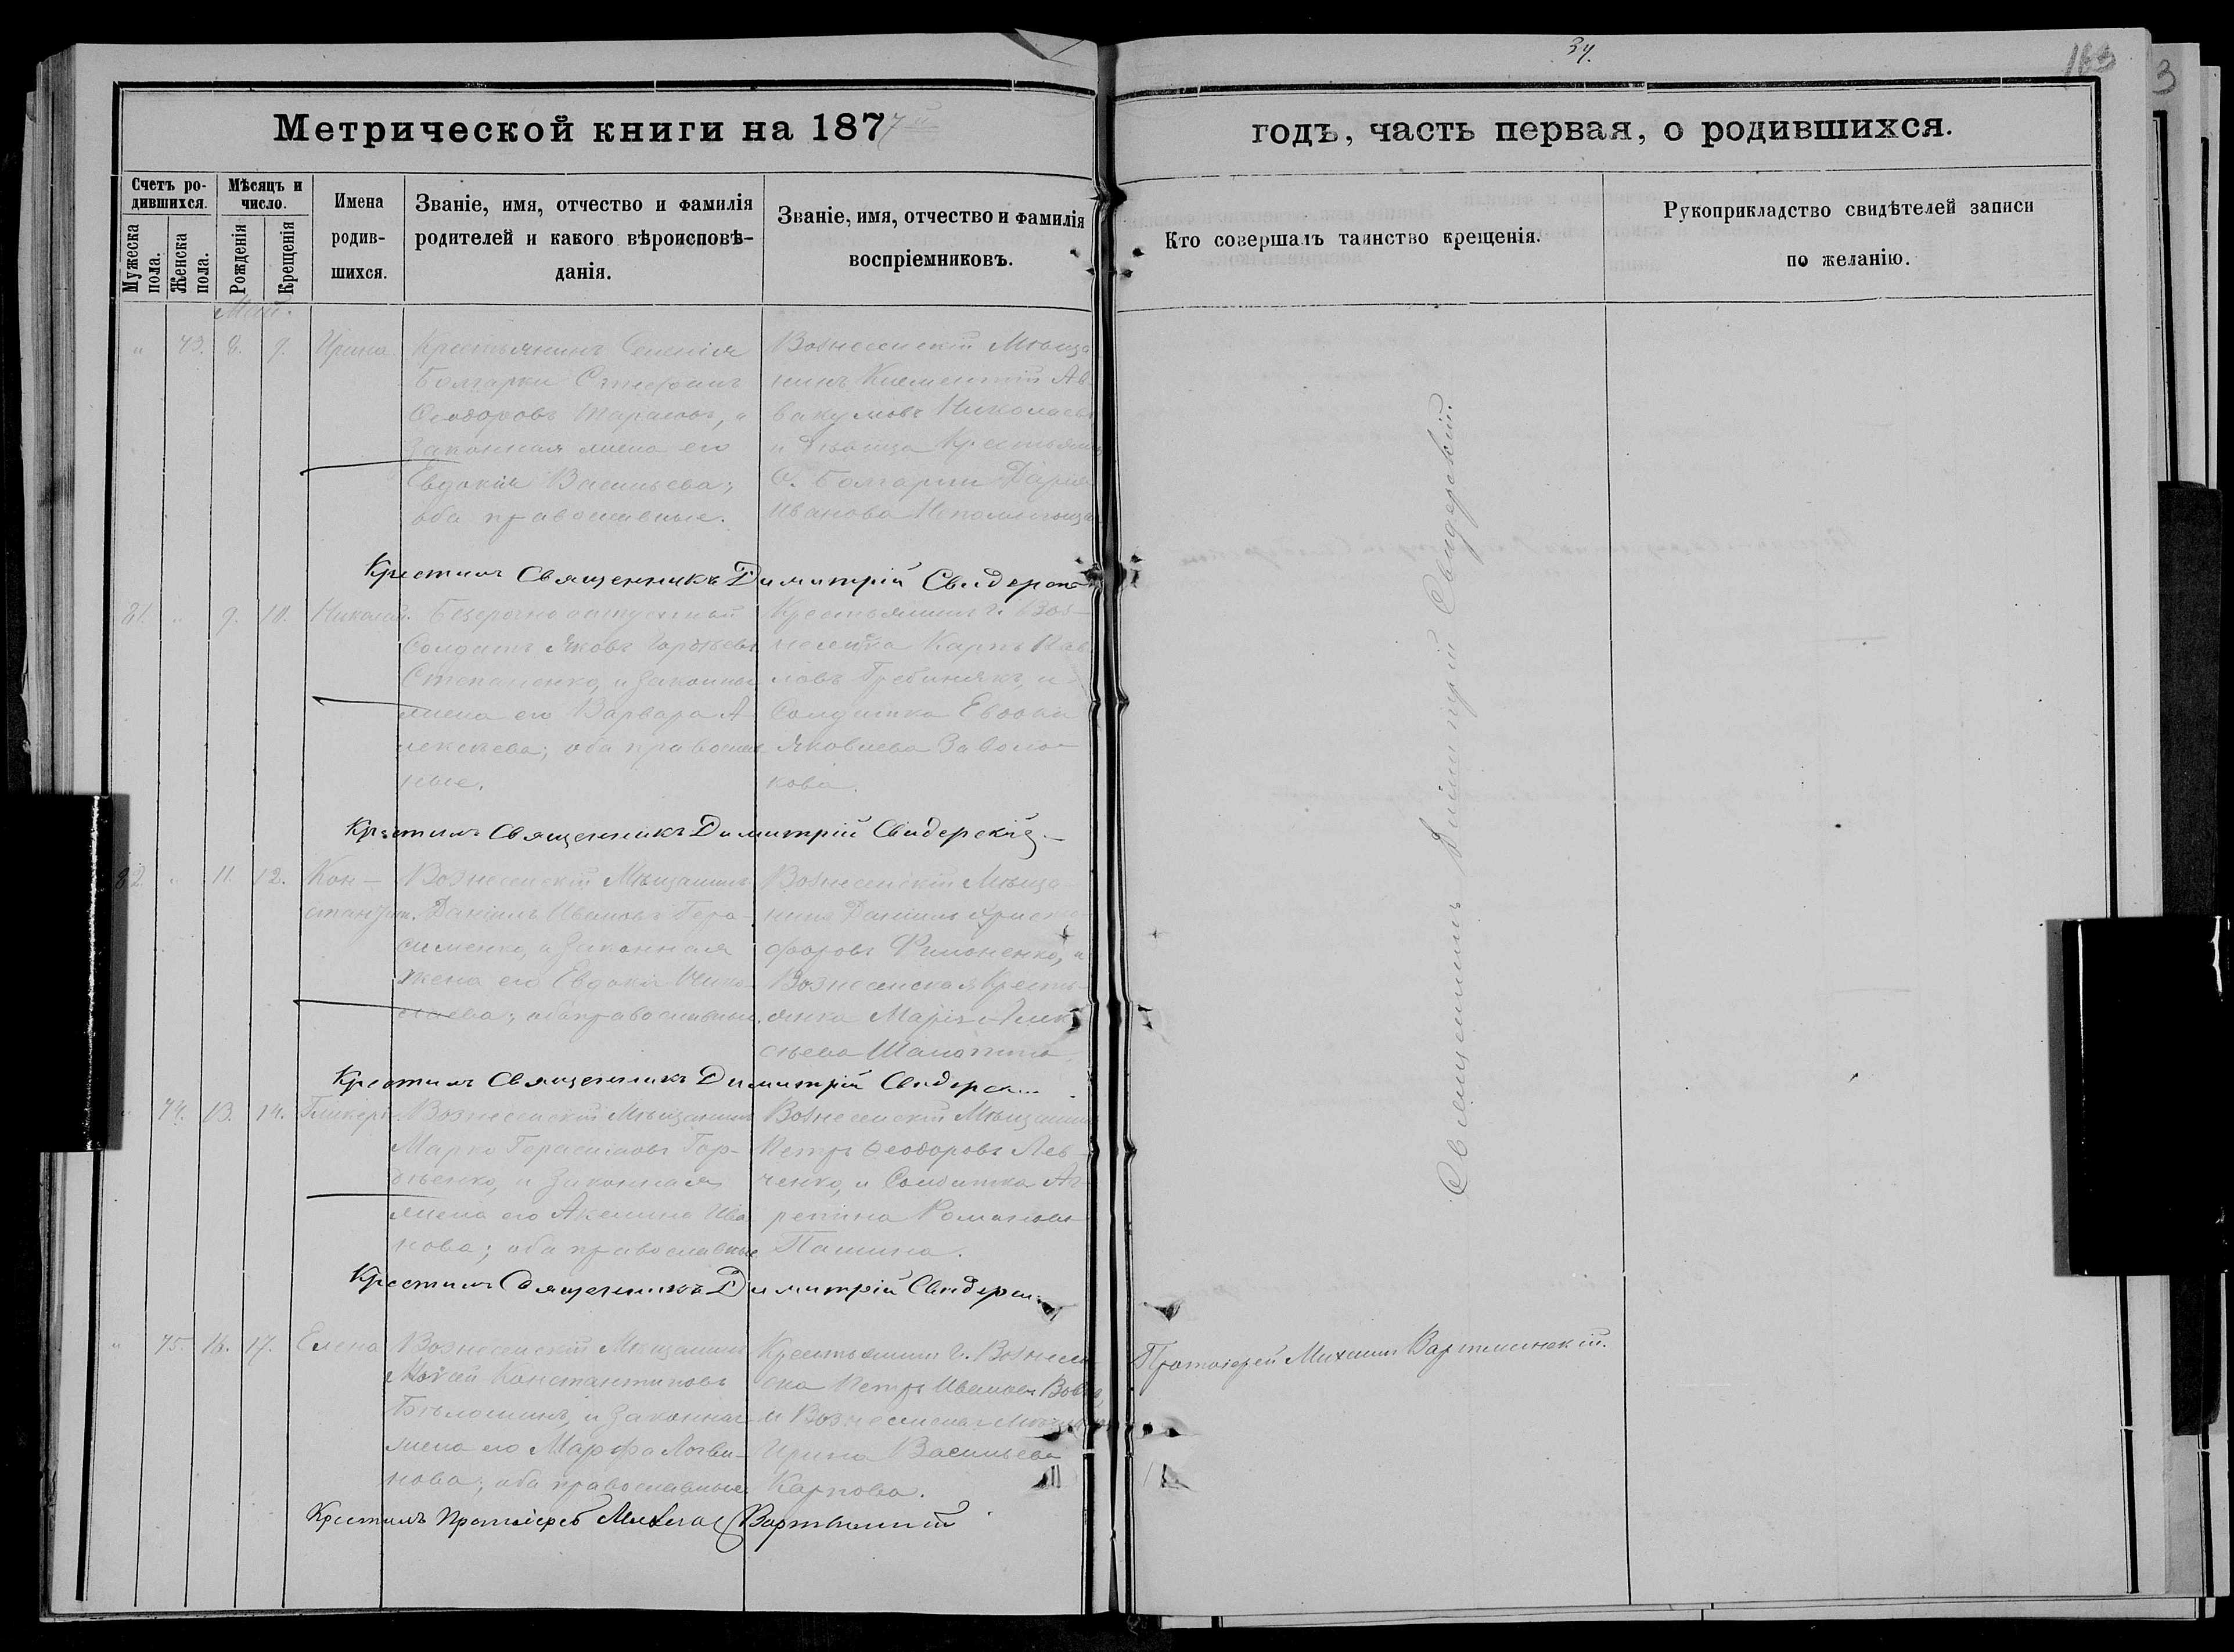 34.
163
3
Метрической книги на 1877й
годъ, часть первая, о родившихся.
Счетъ ро-
дившихся.
Мужеска пола.
Женска пола.
Мѣсяцъ и
число.
Рожденія
Крещенія
Имена
родив-
шихся.
Званіе, имя, отчество и фамилія
родителей и какого вѣроисповѣ-
данія.
Званіе, имя, отчество и фамилія
воспріемниковъ.
Кто совершалъ таинство крещенія.
Рукоприкладство свидѣтелей записи
по желанію.
Май.
" 73. 8. 9. Ирина
Крестьянинъ Селенія
Болгарки Стефанъ
Ѳеодоровъ Тарасюк, и
законная жена его
Евдокія Васильева;
оба православные.
Вознесенскій Мѣща
нинъ Климентій Ав
вакумовъ Николаевъ
и дѣвица Крестьянка
С. Болгарки Дарія
Иванова
Крестилъ Священникъ Димитрій Свидерскі
81. " 9. 10. Николай.
Безсрочно отпускной
Солдатъ Яковъ Гордѣевъ
Степаненко, и законная
жена его Варвара А
лексѣева; оба православ
ные.
Крестьянинъ г. Воз-
несенска Карпъ Пав
ловъ Гребинякъ, и
Солдатка Евдокія
Яковлева Заволо-
кова.
Крестилъ Священникъ Димитрій Свидерскій
82. " 11. 12. Кон-
стантинъ.
Вознесенскій Мѣщанинъ
Даніилъ Ивановъ Гера-
сименко, и законная
жена его Евдокія Нико-
лаева; оба православные.
Вознесенскій Мѣща-
нинъ Даніилъ Христо-
форовъ Филоненко, и
Вознесенская Кресть-
янка Марія Алек
сѣева Шалапина.
Крестилъ Священникъ Димитрій Свидерск
" 74. 13. 14. Гликерія.
Вознесенскій Мѣщанинъ
Марко Герасимовъ Гор-
дѣенко, и законная
жена его Акилина Ива
нова; оба православные
Вознесенскій Мѣщанинъ
Петръ Ѳеодоровъ Лев-
ченко, и Солдатка Аг-
репина Романова
Пашина.
Крестилъ Священникъ Димитрій Свидерск
" 75. 16. 17. Елена
Вознесенскій Мѣщанинъ
Моѵсей Константиновъ
Бѣлошинъ, и законная
жена его Марфа Логви-
нова; оба православные
Крестьянинъ г. Вознесен-
ска Петръ Ивановъ
и Вознесенская Мѣщанка
Ирина Васильева
Карпова.
Крестилъ Протоіерей Михаилъ Вартминскій
Священникъ Димитрій Свидерскій.
Протоіерей Михаилъ Вартминскій.